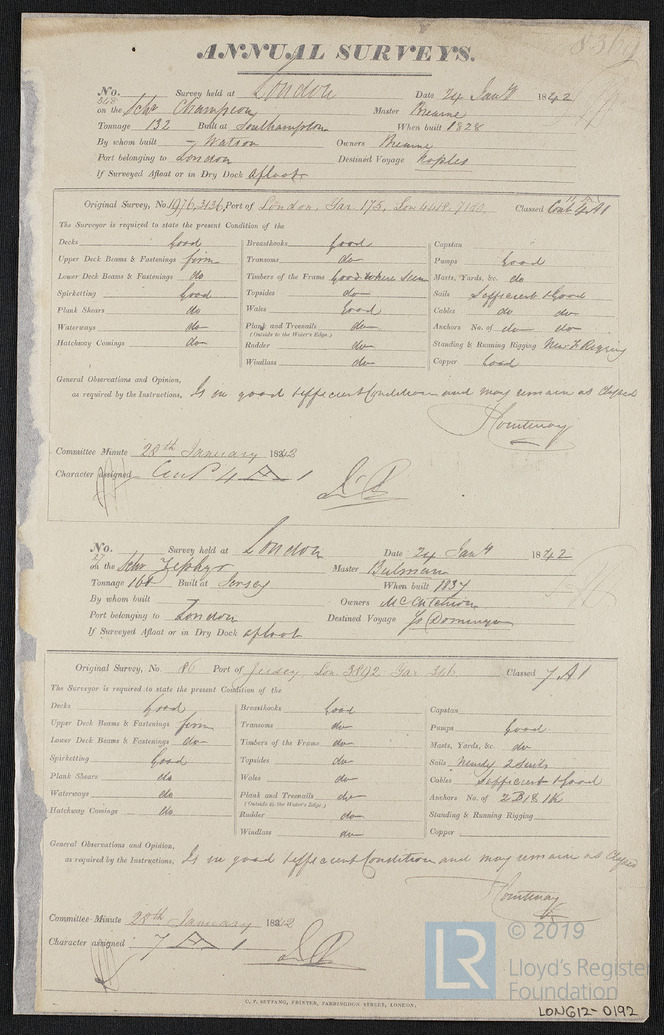 8369
ANNUAL SURVEYS.
No. 348 Survey held at London Date 24 Jany 1842
on the Schr Champion Master Brewne
Tonnage 132 Built at Southampton When built 1828
By whom built — Watson Owners Brewne
Port belonging to London Destined Voyage Naples
If Surveyed Afloat or in Dry Dock afloat
Original Survey, No. 1976, 3136, Port of London, Jar 175, Lon 4448, 7100, Classed Cont 4 A 1
The Surveyor is required to state the present Condition of the
Decks Good Breasthooks Good Capstan
Upper Deck Beams & Fastenings firm Transoms do Pumps Good
Lower Deck Beams & Fastenings do Timbers of the Frame Good Where Seen Masts, Yards, &c. do
Spirketting Good Topsides do Sails Sefficient & Good
Plank Shears do Wales Good Cables do do
Waterways do Plank and Treenails do Anchors No. of do do
(Outside to the Water's Edge.)
Hatchway Comings do Rudder do Standing & Running Rigging New F Rigging
Windlass do Copper Good
General Observations and Opinion,
as required by the Instructions, Is in good & efficient Condition and may remain as Classed
Courtenay
Committee Minute 28th January 1842
Character assigned Cont 4 A 1
No. 27 Survey held at London Date 24 Jany 1842
on the Schr Zephyr Master Bulman
Tonnage 160 Built at Jersey When built 1837
By whom built — Owners McCutcheon
Port belonging to London Destined Voyage St Domingo
If Surveyed Afloat or in Dry Dock afloat
Original Survey, No. 86 Port of Jersey Lon 3892 Jar 346 Classed 7 A 1
The Surveyor is required to state the present Condition of the
Decks Good Breasthooks Good Capstan
Upper Deck Beams & Fastenings firm Transoms do Pumps Good
Lower Deck Beams & Fastenings do Timbers of the Frame do Masts, Yards, &c. do
Spirketting Good Topsides do Sails Nearly 2 Suits
Plank Shears do Wales do Cables Sefficient & Good
Waterways do Plank and Treenails do Anchors No. of 2 B 1 S 1 K
(Outside to the Water's Edge.)
Hatchway Comings do Rudder do Standing & Running Rigging
Windlass do Copper
General Observations and Opinion,
as required by the Instructions, Is in good & efficient Condition and may remain as Classed
Courtenay
Committee Minute 28th January 1842
Character assigned 7 A 1
C. F. SEYFANG, PRINTER, FARRINGDON STREET, LONDON.
LR © 2019
Lloyd's Register
Foundation
LON612-0192